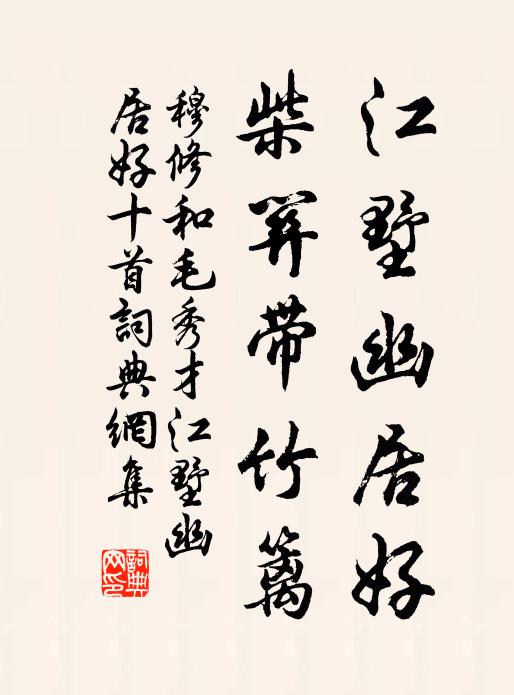 江墅幽居好
柴笄帶竹籬
穆修和毛秀才江墅幽
居好十首詞典網集
詞典网印